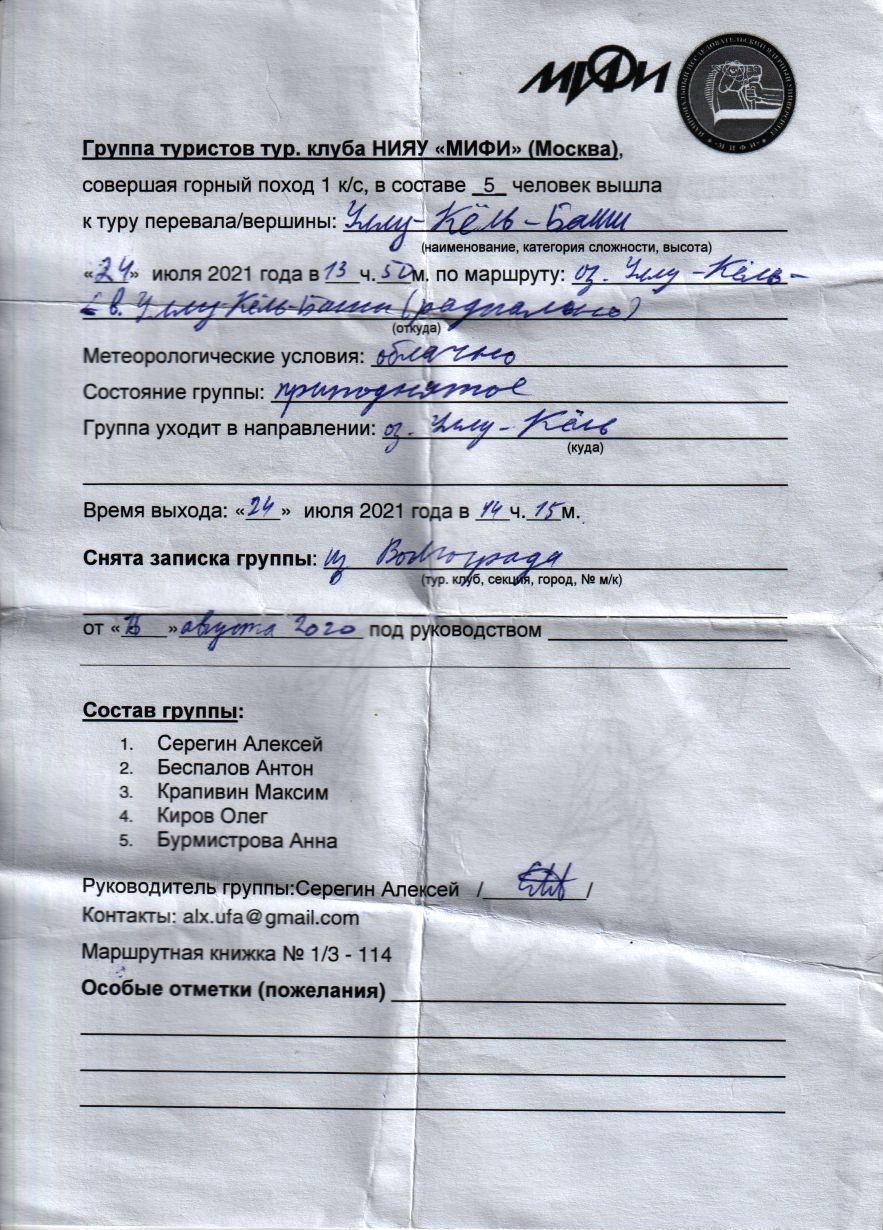 МИФИ
НАЦИОНАЛЬНЫЙ ИССЛЕДОВАТЕЛЬСКИЙ ЯДЕРНЫЙ УНИВЕРСИТЕТ
МИФИ
Группа туристов тур. клуба НИЯУ «МИФИ» (Москва),
совершая горный поход 1 к/с, в составе _5_ человек вышла
к туру перевала/вершины: Уллу-Кёль-Баши
(наименование, категория сложности, высота)
«24» июля 2021 года в 13 ч. 50 м. по маршруту: оз. Уллу-Кёль-
в. Уллу Кёль-Баши (радиально)
(откуда)
Метеорологические условия: облачно
Состояние группы: приподнятое
Группа уходит в направлении: оз. Уллу-Кёль
(куда)
Время выхода: «24» июля 2021 года в 14 ч. 15 м.
Снята записка группы: из Волгограда
(тур. клуб, секция, город, № м/к)
от «15» августа 2020 под руководством
Состав группы:
1. Серегин Алексей
2. Беспалов Антон
3. Крапивин Максим
4. Киров Олег
5. Бурмистрова Анна
Руководитель группы:Серегин Алексей / /
Контакты: alx.ufa@gmail.com
Маршрутная книжка № 1/3 - 114
Особые отметки (пожелания)